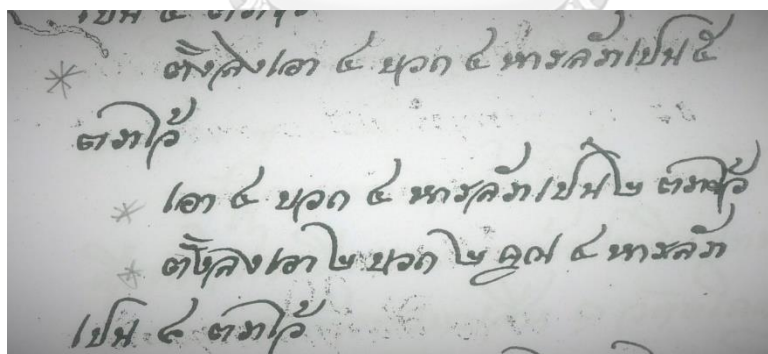 เปน ๔ ตราไว้
ตั้งลงเอา ๔ บวก ๔ หารลัภเปน ๕
ตราไว้
เอา ๔ บวก ๔ หารลัภเปน ๒ ตราไว้
ตั้งลงเอา ๒ บวก ๒ คูณ ๔ หารลัภ
เปน ๔ ตราไว้